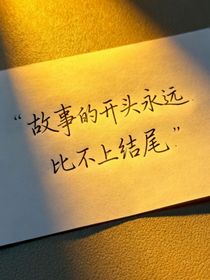 “故事的开头永远
比不上结尾”